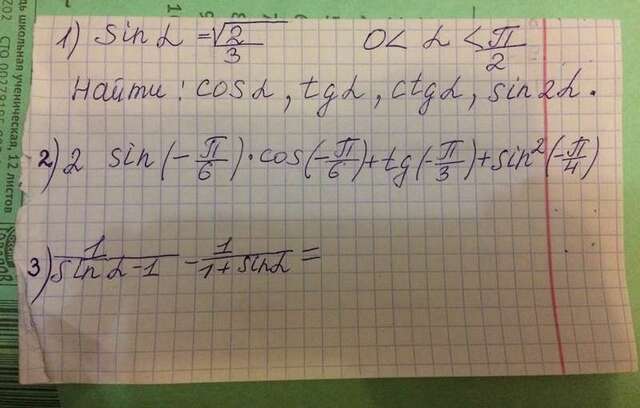 1) sin α = √2/3    0 < α < π/2
Найти: cos α, tg α, ctg α, sin 2α.
2) 2 sin(-π/6)·cos(-π/6)+tg(-π/3)+sin²(-π/4)
3) 1/(sin α - 1) - 1/(1 + sin α) =
дь школьная ученическая, 12 листов